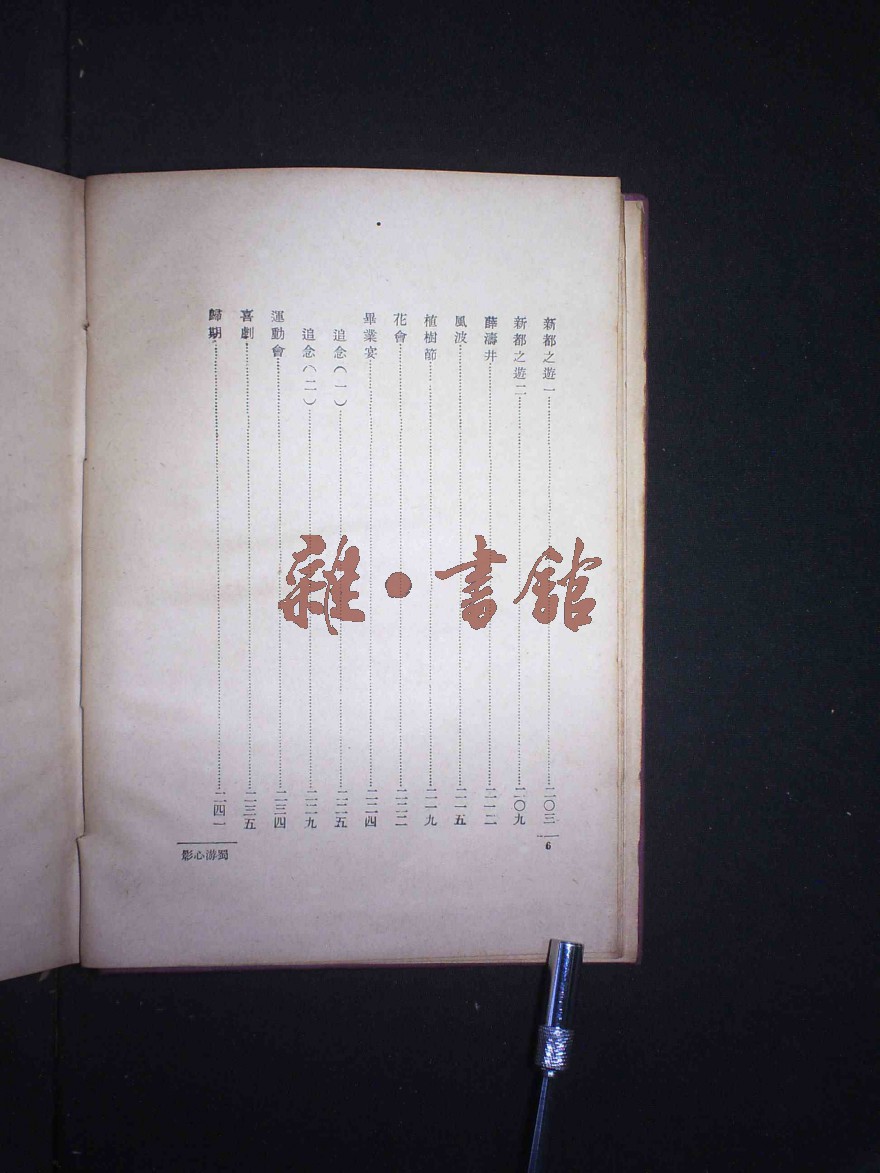 新都之遊一……二〇三
新都之遊二……二〇九
薛濤井……二一二
風波……二一五
植樹節……二一九
花會……二二二
畢業宴……二二四
追念（一）……二二五
追念（二）……二二九
運動會……二三四
喜劇……二三五
歸期……二四一
6
蜀游心影
雜·書館